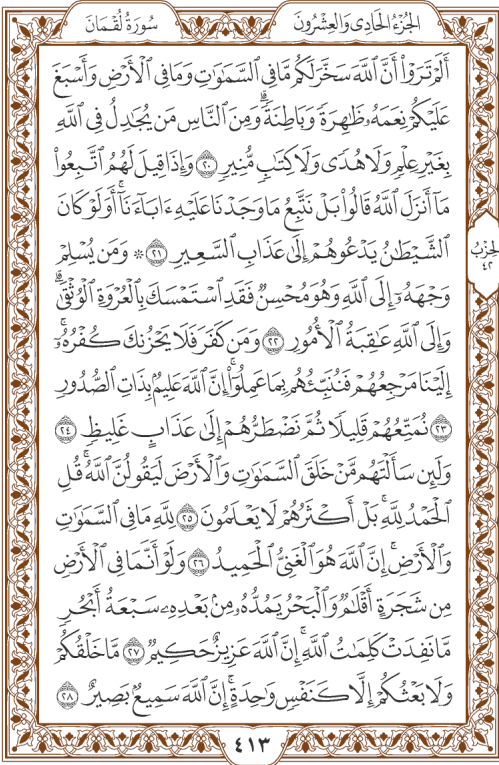 الجُزْءُ الحَادِي وَالعِشْرُونَ
سُورَةُ لُقْمَانَ
أَلَمْ تَرَوْا۟ أَنَّ ٱللَّهَ سَخَّرَ لَكُم مَّا فِى ٱلسَّمَٰوَٰتِ وَمَا فِى ٱلْأَرْضِ وَأَسْبَغَ
عَلَيْكُمْ نِعَمَهُۥ ظَٰهِرَةً وَبَاطِنَةً ۗ وَمِنَ ٱلنَّاسِ مَن يُجَٰدِلُ فِى ٱللَّهِ
بِغَيْرِ عِلْمٍ وَلَا هُدًى وَلَا كِتَٰبٍ مُّنِيرٍ ٢٠ وَإِذَا قِيلَ لَهُمُ ٱتَّبِعُوا۟
مَآ أَنزَلَ ٱللَّهُ قَالُوا۟ بَلْ نَتَّبِعُ مَا وَجَدْنَا عَلَيْهِ ءَابَآءَنَآ ۚ أَوَلَوْ كَانَ
ٱلشَّيْطَٰنُ يَدْعُوهُمْ إِلَىٰ عَذَابِ ٱلسَّعِيرِ ٢١ ۞ وَمَن يُسْلِمْ
وَجْهَهُۥٓ إِلَى ٱللَّهِ وَهُوَ مُحْسِنٌ فَقَدِ ٱسْتَمْسَكَ بِٱلْعُرْوَةِ ٱلْوُثْقَىٰ ۗ
وَإِلَى ٱللَّهِ عَٰقِبَةُ ٱلْأُمُورِ ٢٢ وَمَن كَفَرَ فَلَا يَحْزُنكَ كُفْرُهُۥٓ ۚ
إِلَيْنَا مَرْجِعُهُمْ فَنُنَبِّئُهُم بِمَا عَمِلُوٓا۟ ۚ إِنَّ ٱللَّهَ عَلِيمٌۢ بِذَاتِ ٱلصُّدُورِ
٢٣ نُمَتِّعُهُمْ قَلِيلًا ثُمَّ نَضْطَرُّهُمْ إِلَىٰ عَذَابٍ غَلِيظٍ ٢٤
وَلَئِن سَأَلْتَهُم مَّنْ خَلَقَ ٱلسَّمَٰوَٰتِ وَٱلْأَرْضَ لَيَقُولُنَّ ٱللَّهُ ۚ قُلِ
ٱلْحَمْدُ لِلَّهِ ۚ بَلْ أَكْثَرُهُمْ لَا يَعْلَمُونَ ٢٥ لِلَّهِ مَا فِى ٱلسَّمَٰوَٰتِ
وَٱلْأَرْضِ ۚ إِنَّ ٱللَّهَ هُوَ ٱلْغَنِىُّ ٱلْحَمِيدُ ٢٦ وَلَوْ أَنَّمَا فِى ٱلْأَرْضِ
مِن شَجَرَةٍ أَقْلَٰمٌ وَٱلْبَحْرُ يَمُدُّهُۥ مِنۢ بَعْدِهِۦ سَبْعَةُ أَبْحُرٍ
مَّا نَفِدَتْ كَلِمَٰتُ ٱللَّهِ ۗ إِنَّ ٱللَّهَ عَزِيزٌ حَكِيمٌ ٢٧ مَّا خَلْقُكُمْ
وَلَا بَعْثُكُمْ إِلَّا كَنَفْسٍ وَٰحِدَةٍ ۗ إِنَّ ٱللَّهَ سَمِيعٌۢ بَصِيرٌ ٢٨
الحِزْبُ
٤٢
٤١٣